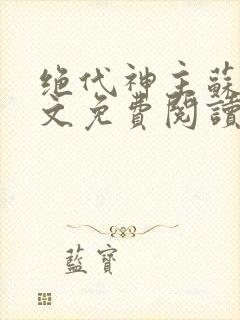 绝代神主蘇
文免費閱讀
藍寶